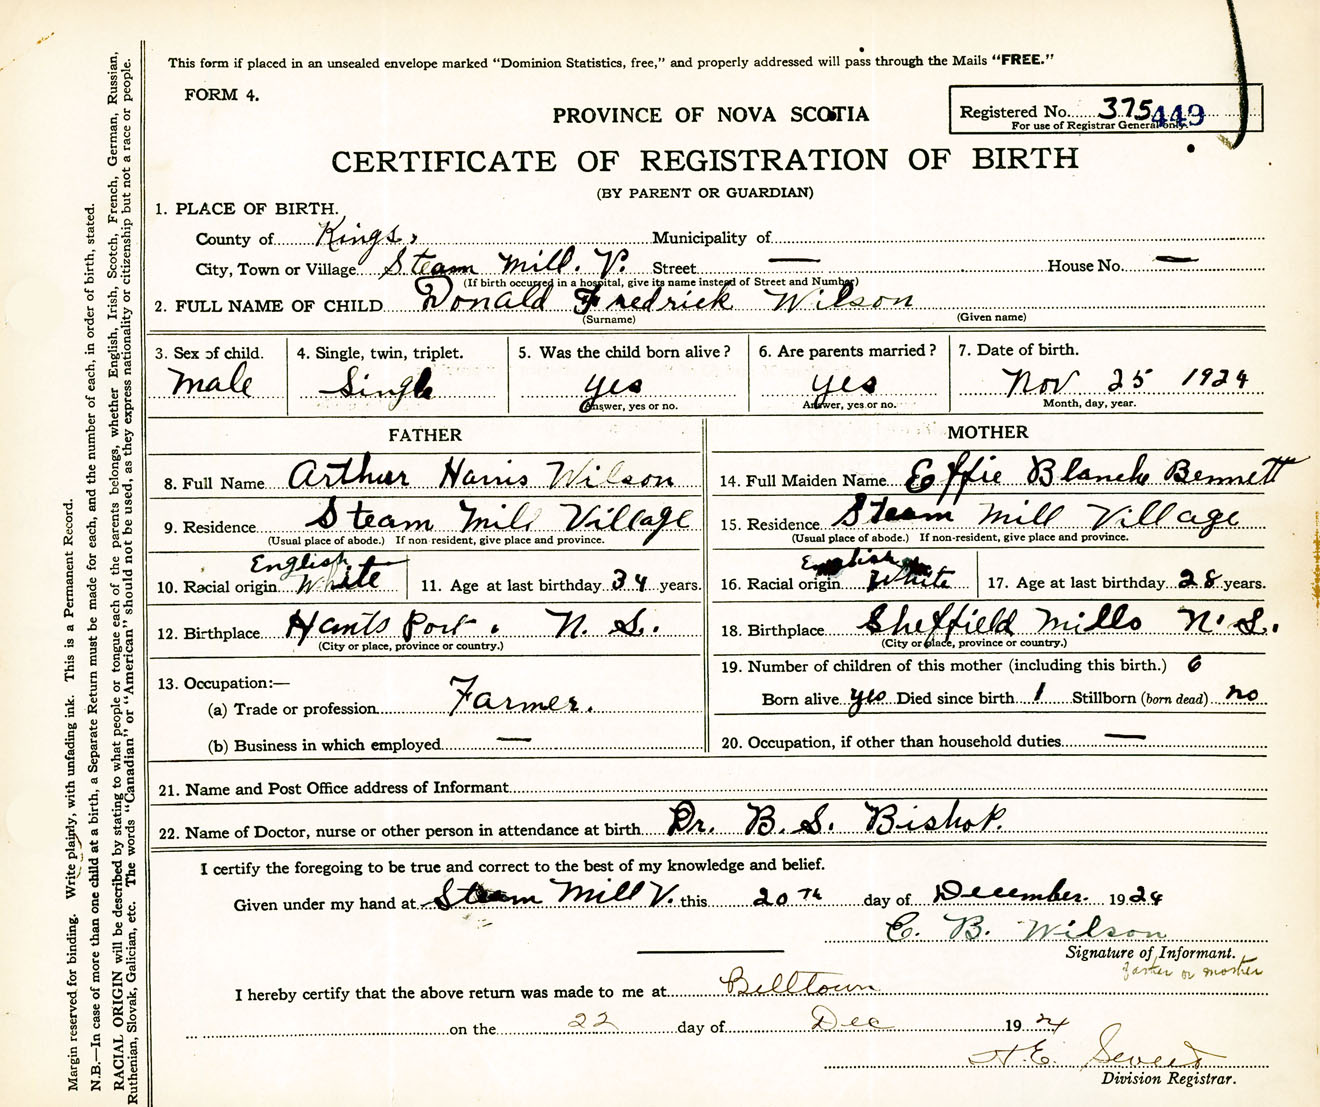 This form if placed in an unsealed envelope marked "Dominion Statistics, free," and properly addressed will pass through the Mails "FREE."
FORM 4.
PROVINCE OF NOVA SCOTIA
Registered No. 375 449
For use of Registrar General only.
CERTIFICATE OF REGISTRATION OF BIRTH
(BY PARENT OR GUARDIAN)
1. PLACE OF BIRTH.
County of Kings, Municipality of
City, Town or Village Steam Mill. V. Street — House No. —
(If birth occurred in a hospital, give its name instead of Street and Number)
2. FULL NAME OF CHILD Donald Fredrick Wilson
(Surname) (Given name)
3. Sex of child. 4. Single, twin, triplet. 5. Was the child born alive? 6. Are parents married? 7. Date of birth.
Male Single yes yes Nov 25 1924
Answer, yes or no. Answer, yes or no. Month, day, year.
FATHER MOTHER
8. Full Name Arthur Harris Wilson 14. Full Maiden Name Effie Blanche Bennett
9. Residence Steam Mill Village 15. Residence Steam Mill Village
(Usual place of abode.) If non-resident, give place and province. (Usual place of abode.) If non-resident, give place and province.
English English
10. Racial origin White 11. Age at last birthday 34 years. 16. Racial origin White 17. Age at last birthday 28 years.
12. Birthplace Hants Port. N. S. 18. Birthplace Sheffield Mills N. S.
(City or place, province or country.) (City or place, province or country.)
13. Occupation:— 19. Number of children of this mother (including this birth.) 6
(a) Trade or profession Farmer. Born alive yes Died since birth 1 Stillborn (born dead) no
(b) Business in which employed — 20. Occupation, if other than household duties —
21. Name and Post Office address of Informant
22. Name of Doctor, nurse or other person in attendance at birth Dr. B. S. Bishop.
I certify the foregoing to be true and correct to the best of my knowledge and belief.
Given under my hand at Steam Mill V. this 20th day of December. 1924
E. B. Wilson
Signature of Informant.
father or mother
I hereby certify that the above return was made to me at Belltown
on the 22 day of Dec 1924
Division Registrar.
Margin reserved for binding. Write plainly, with unfading ink. This is a Permanent Record.
N.B.—In case of more than one child at a birth, a Separate Return must be made for each, and the number of each, in order of birth, stated.
RACIAL ORIGIN will be described by stating to what people or tongue each of the parents belongs, whether English, Irish, Scotch, French, German, Russian,
Ruthenian, Slovak, Galician, etc. The words "Canadian" or "American" should not be used, as they express nationality or citizenship but not a race or people.